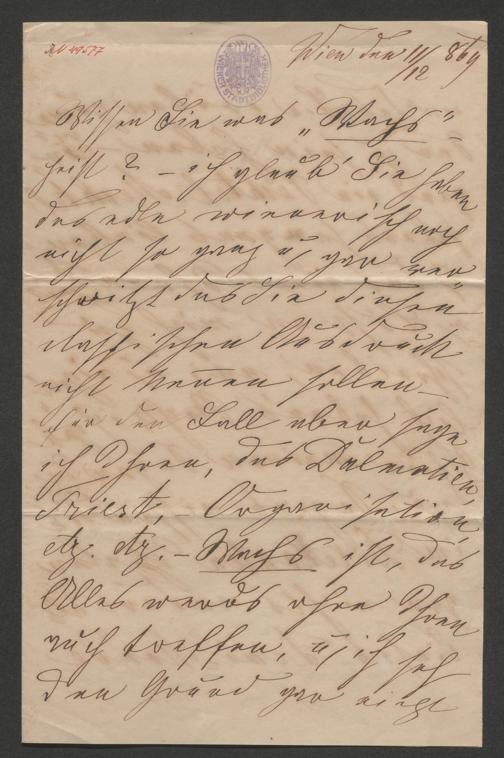 AN 49577
Wien den 11/12 869
Wissen Sie was „Wachs"
heißt? – ich glaub' Sie haben
das edle wienerisch noch
nicht so ganz u. gar ver„
schwitzt das Sie diesen
classischen Ausdruck
nicht kennen sollen –
für den Fall aber sage
ich Ihnen, das Dalmatien,
Triest, – Organisation,
etz. etz. – Wachs ist, das
Alles werds ohne Ihnen
auch treffen, u. ich seh
den Grund gar nicht